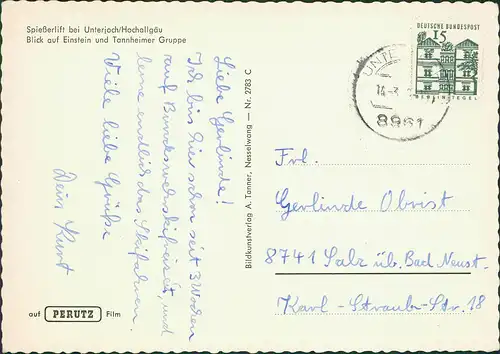 Spießerlift bei Unterjoch/Hochallgäu
Blick auf Einstein und Tannheimer Gruppe
Liebe Gerlinde!
Ich bin hier schon seit 3 Wochen
auf Bundeswehrskifreizeit, und
lerne endlich das Skifahren.
Viele liebe Grüße
Dein Kurt
auf PERUTZ Film
Bildkunstverlag A. Tanner, Nesselwang — Nr. 2783 C
DEUTSCHE BUNDESPOST
15
BERLIN-TEGEL
UNTE
14-3
8961
Frl.
Gerlinde Obrist
8741 Salz üb. Bad Neust.
Karl-Straub-Str. 18